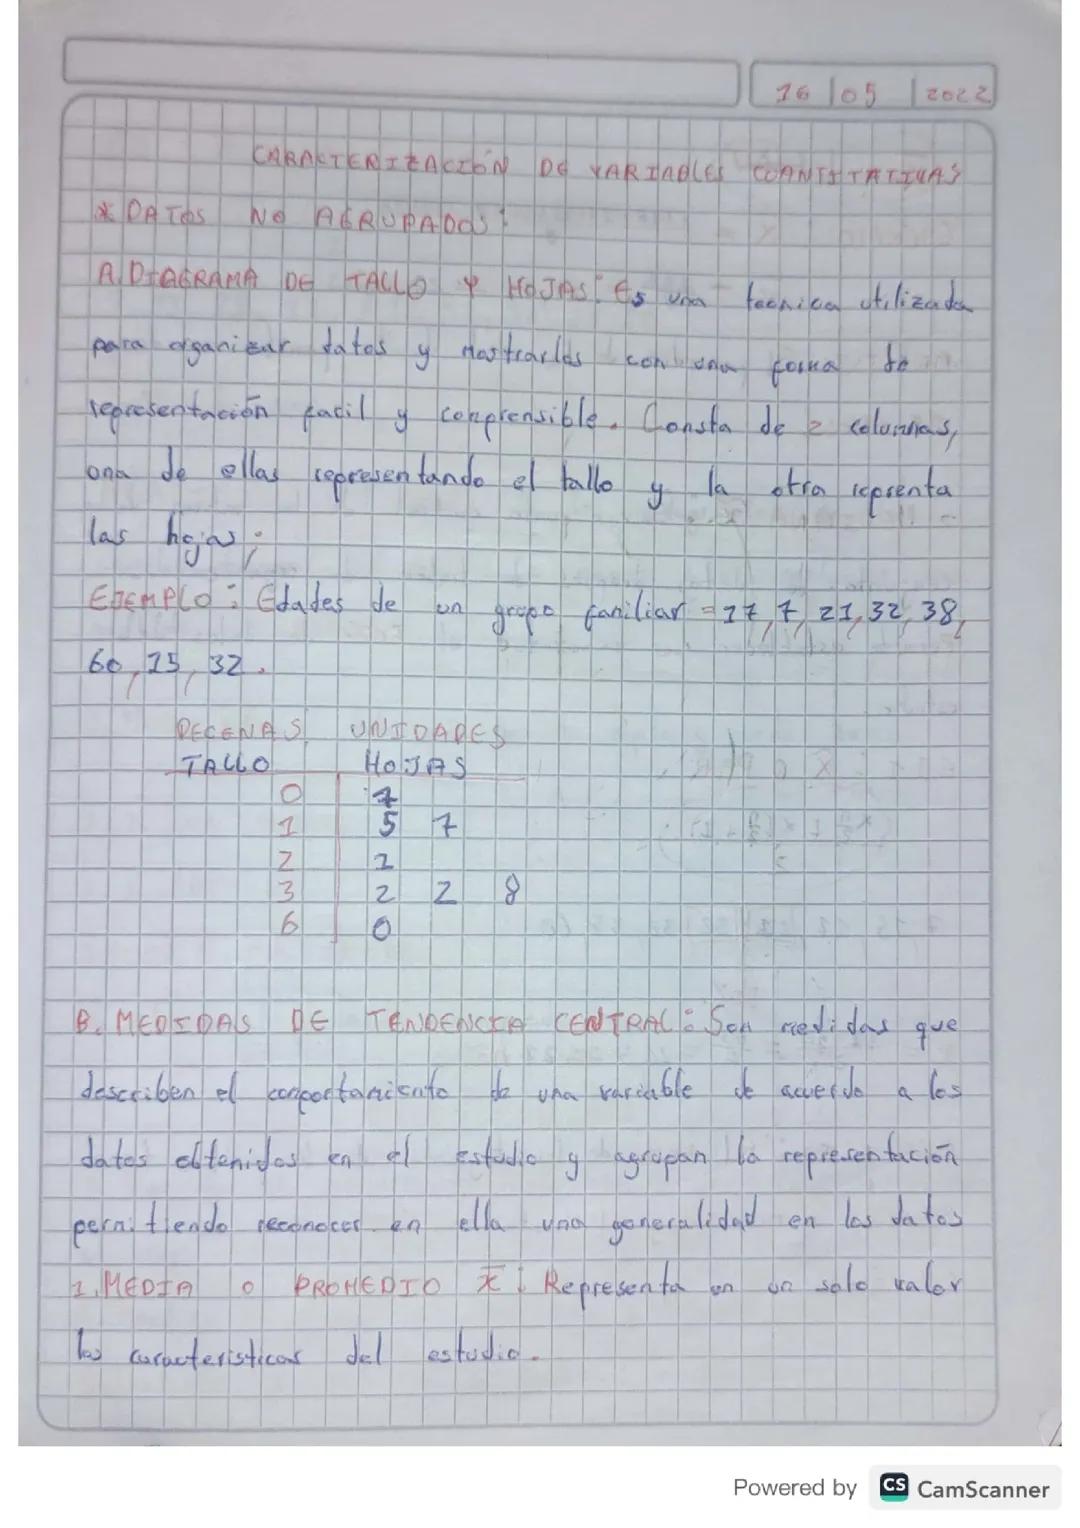 16 | 05 | 2022
CARACTERIZACIÓN DE VARIABLES CUANTITATIVAS
* DATOS NO AGRUPADOS:
A. DIAGRAMA DE TALLO Y HOJAS: Es una tecnica utilizada
para organizar datos y mostrarlos con una forma de
representación facil y comprensible. Consta de 2 columnas,
una de ellas representando el tallo y la otra reprsenta
las hojas;
EJEMPLO: Edades de un grupo familiar = 17, 7, 21, 32, 38,
60, 15, 32.
DECENAS UNIDADES
TALLO HOJAS
0 7
1 5 7
2 1
3 2 2 8
6 0
B. MEDIDAS DE TENDENCIA CENTRAL: Son medidas que
describen el comportamiento de una variable de acuerdo a los
datos obtenidos en el estudio y agrupan la representación
permitiendo reconocer en ella una generalidad en los datos
1. MEDIA O PROMEDIO x̄: Representa en un solo valor
las caracteristicas del estudio.
Powered by CS CamScanner